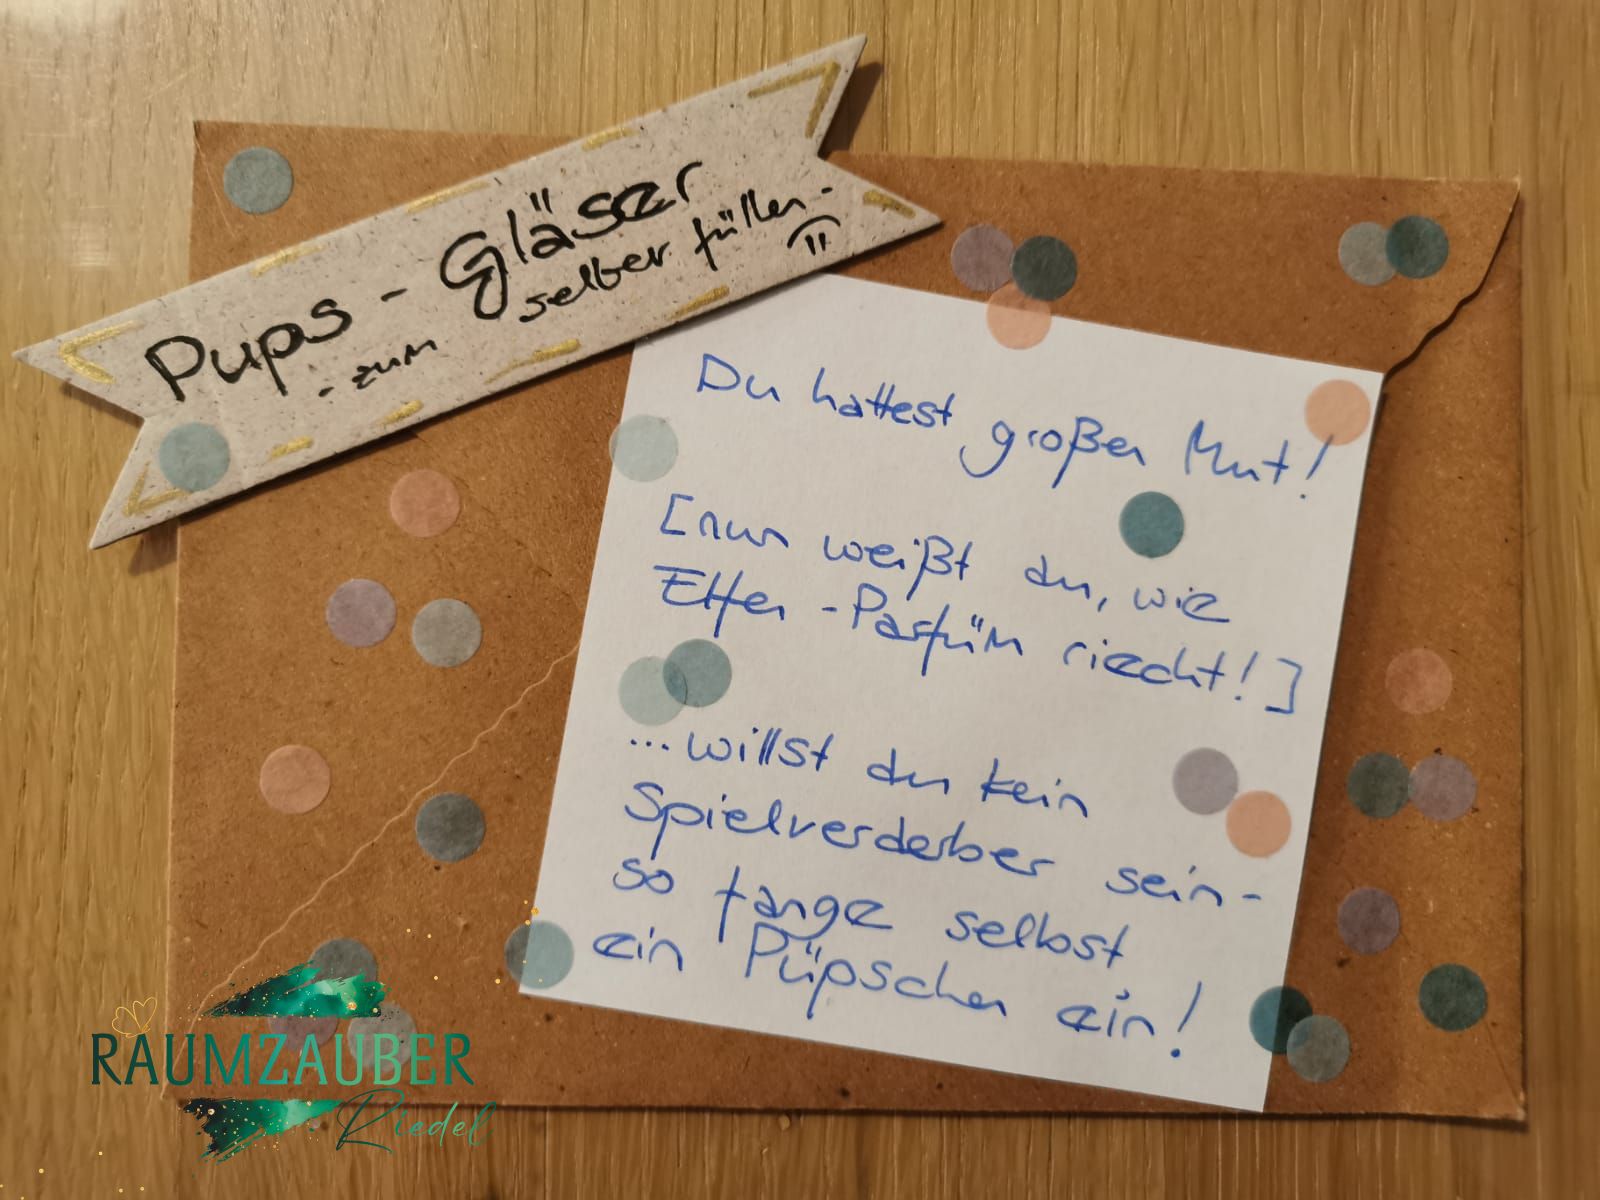 Pups - Gläser
- zum selber füllen -
Du hattest großen Mut!
[nun weißt du, wie
Elfen-Parfüm riecht!]
...willst du kein
Spielverderber sein -
so fange selbst
ein Püpschen ein!
RAUMZAUBER
Riedel